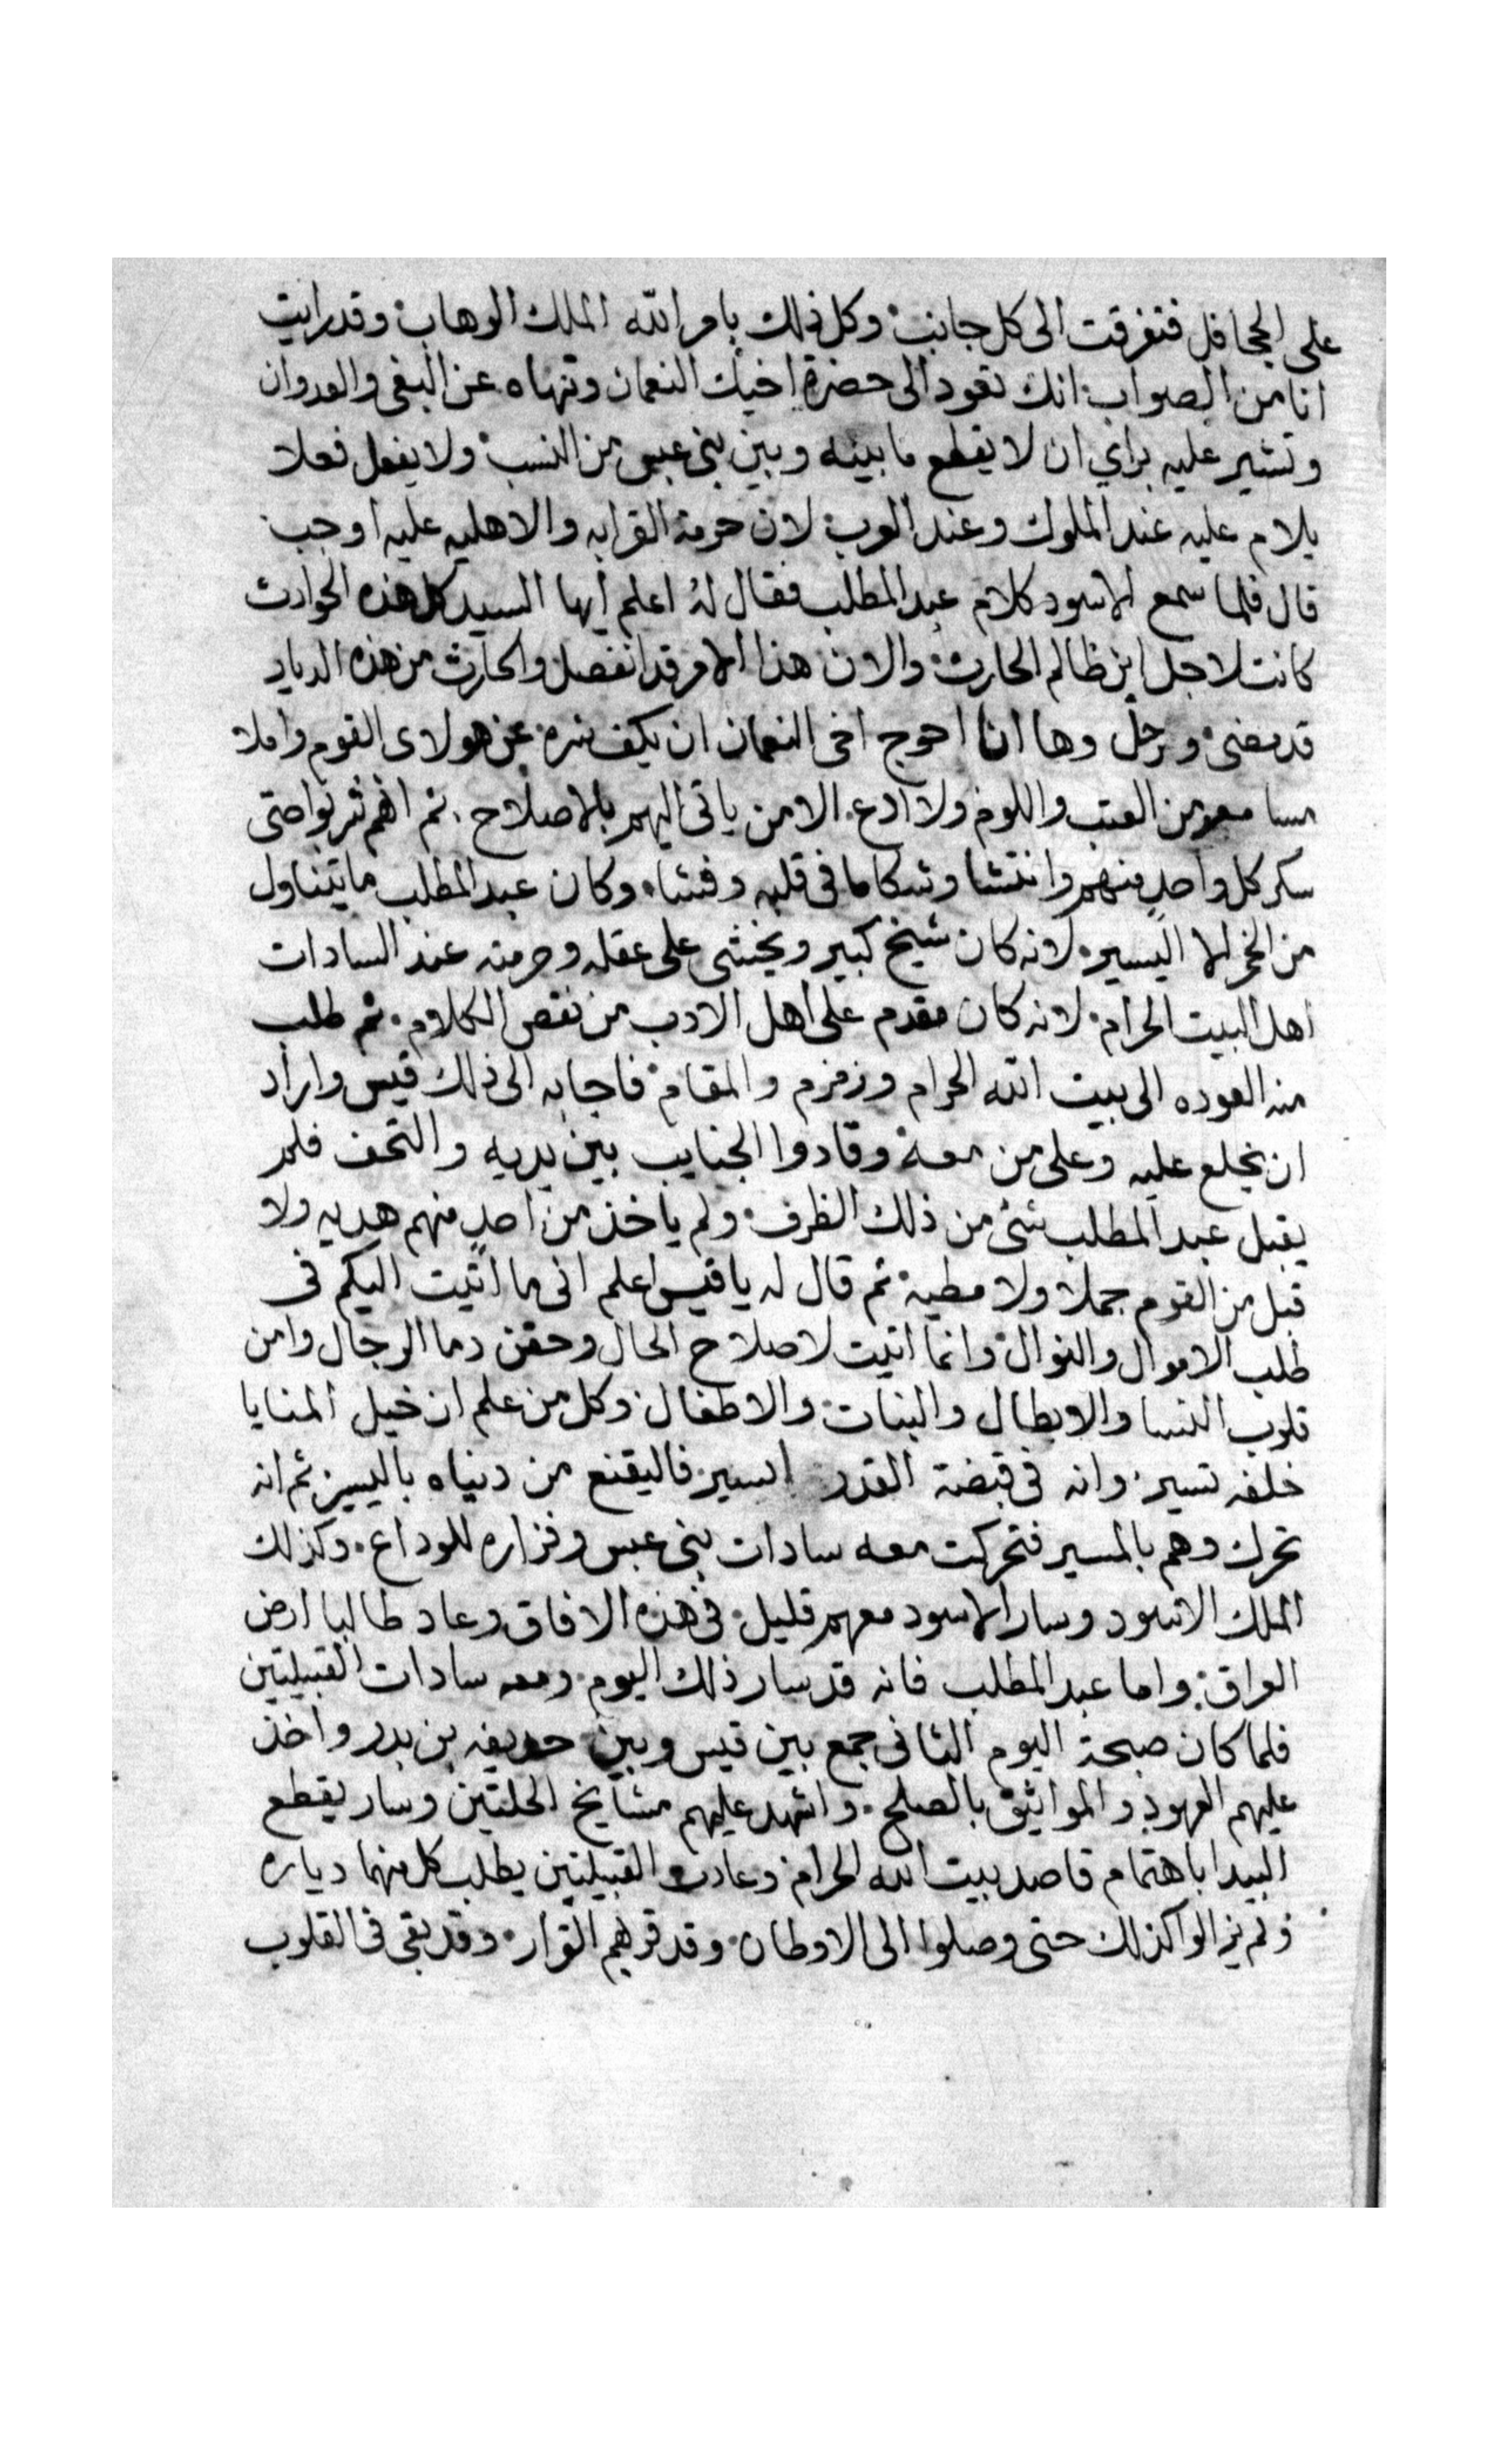 على الجحافل فتفرقت الى كل جانب وكل ذلك بامر الله الملك الوهاب وقد رايت
انا من الصواب انك تعود الى حضرة اخيك النعمان وتنهاه عن البغى والعدوان
وتشير عليه براي ان لا يقطع ما بينه وبين بنى عبس من النسب ولا يفعل فعلا
يلام عليه عند الملوك وعند العرب لان حرمة القرابه والاهليه عليه اوجب
قال فلما سمع الاسود كلام عبد المطلب فقال له اعلم ايها السيد كل هذه الحوادث
كانت لاجل ابن ظالم الحارث والان هذا الامر قد انفصل والحارث من هذه الديار
قد مضى ورحل وها انا احوج اخى النعمان ان يكف شره عن هولاى القوم واملا
مسامعه من العتب واللوم ولا ادع الا من ياتى اليهم بالاصلاح ثم انهم شربوا حتى
سكر كل واحدٍ منهم وانتشا وشكا ما فى قلبه وفشا وكان عبد المطلب ما يتناول
من الخمر الا اليسير لانه كان شيخ كبير ويخشى على عقله وحرمته عند السادات
اهل البيت الحرام لانه كان مقدم على اهل الادب من نقص الكلام ثم طلب
منه العوده الى بيت الله الحرام وزمزم والمقام فاجابه الى ذلك قيس واراد
ان يخلع عليه وعلى من معه وقادوا الجنايب بين يديه والتحف فلم
يقبل عبد المطلب شئ من ذلك الظرف ولم ياخذ من احدٍ منهم هديه ولا
قبل من القوم جملا ولا مطية ثم قال له يا قيس اعلم انى ما اتيت اليكم فى
طلب الاموال والنوال وانما اتيت لاصلاح الحال وحقن دما الرجال وامن
قلوب النسا والابطال والبنات والاطفال وكل من علم ان خيل المنايا
خلفه تسير وانه فى قبضة القدر اسير فاليقنع من دنياه باليسير ثم انه
تحرك وهم بالمسير فتحركت معه سادات بنى عبس وفزاره للوداع وكذلك
الملك الاسود وسار الاسود معهم قليل فى هذه الافاق وعاد طالبا ارض
العراق واما عبد المطلب فانه قد سار ذلك اليوم ومعه سادات القبيلتين
فلما كان صبحة اليوم الثانى جمع بين قيس وبين حديفه بن بدر واخذ
عليهم العهود والمواثيق بالصلح واشهد عليهم مشايخ الحلتين وسار يقطع
البيدا باهتمام قاصد بيت الله الحرام وعادت القبيلتين يطلب كل منهما دياره
ولم يزالوا كذلك حتى وصلوا الى الاوطان وقد قر بهم القرار وقد بقى فى القلوب